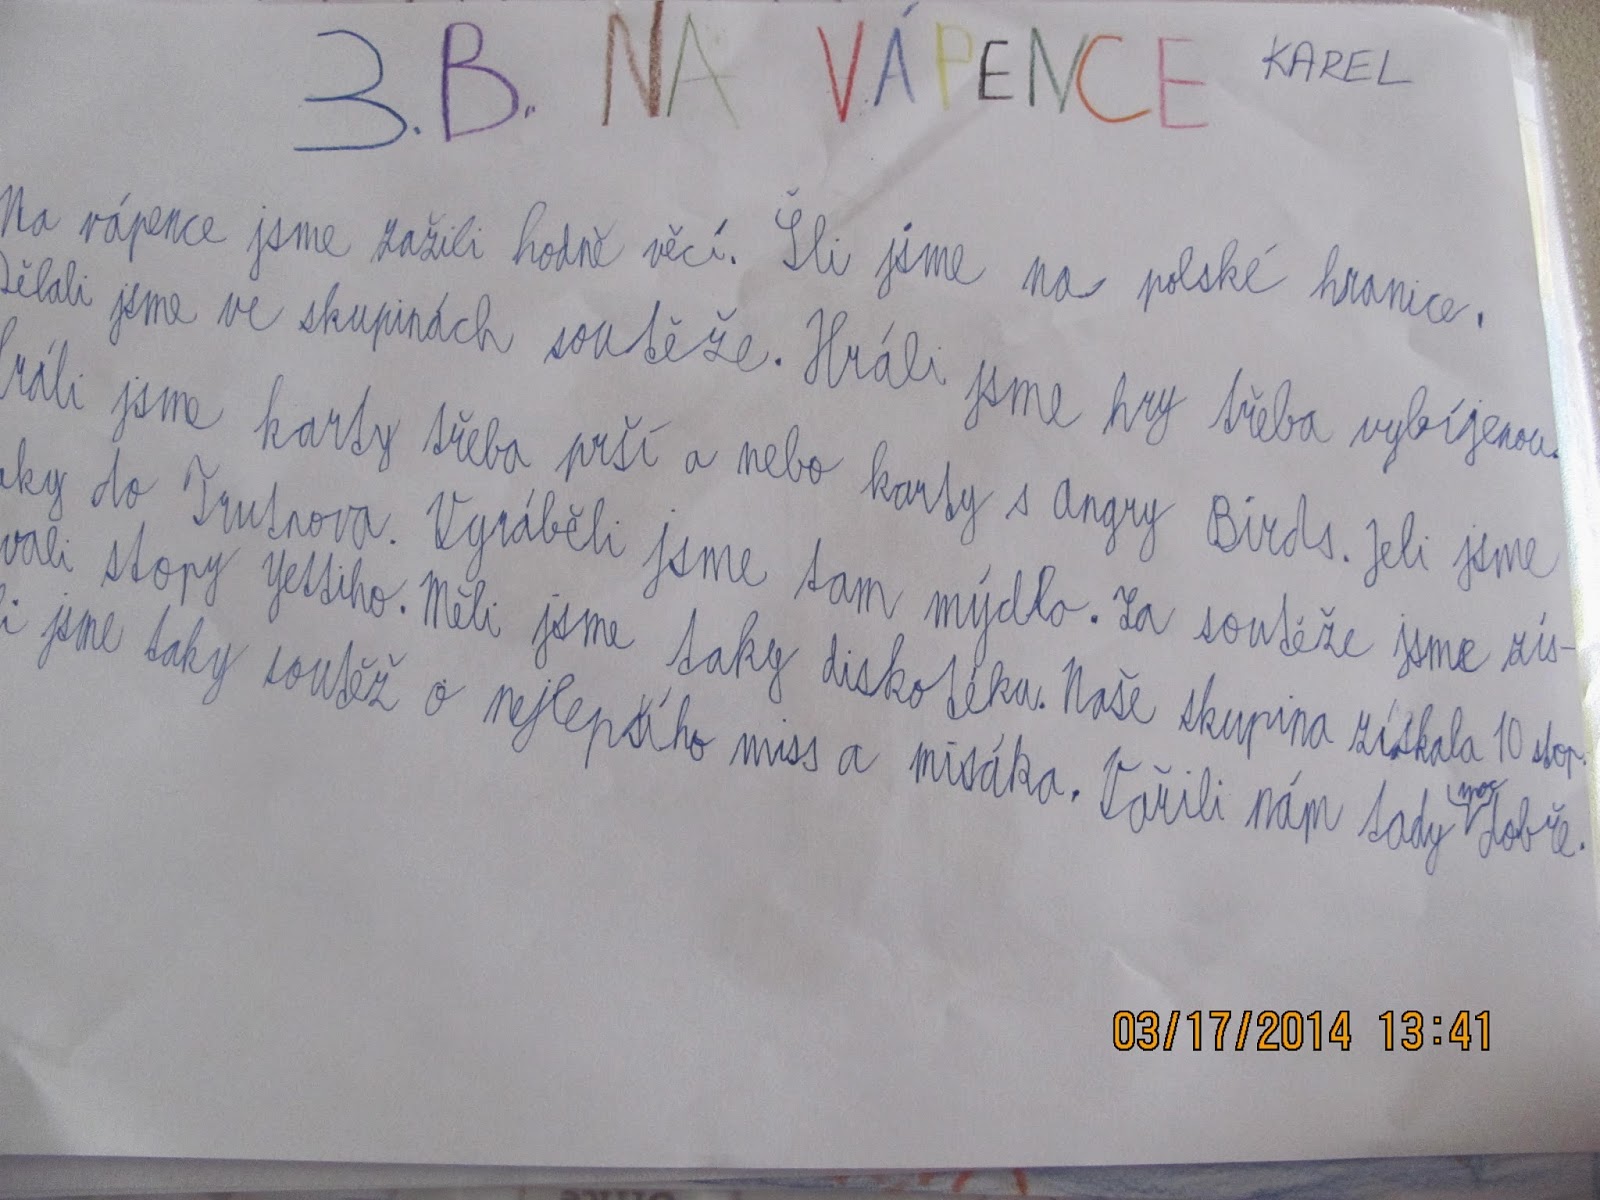 3. B. NA VÁPENCE KAREL
Na vápence jsme zažili hodně věcí. Šli jsme na polské hranice.
Dělali jsme ve skupinách soutěže. Hráli jsme hry třeba vybíjenou.
hráli jsme karty třeba prší a nebo karty s Angry Birds. Jeli jsme
aky do Trutnova. Vyráběli jsme tam mýdlo. Za soutěže jsme zís-
vali stopy Yettiho. Měli jsme taky diskotéku. Naše skupina získala 10 stop.
li jsme taky soutěž o nejlepšího miss a misáka. Vařili nám tady moc dobře.
03/17/2014 13:41